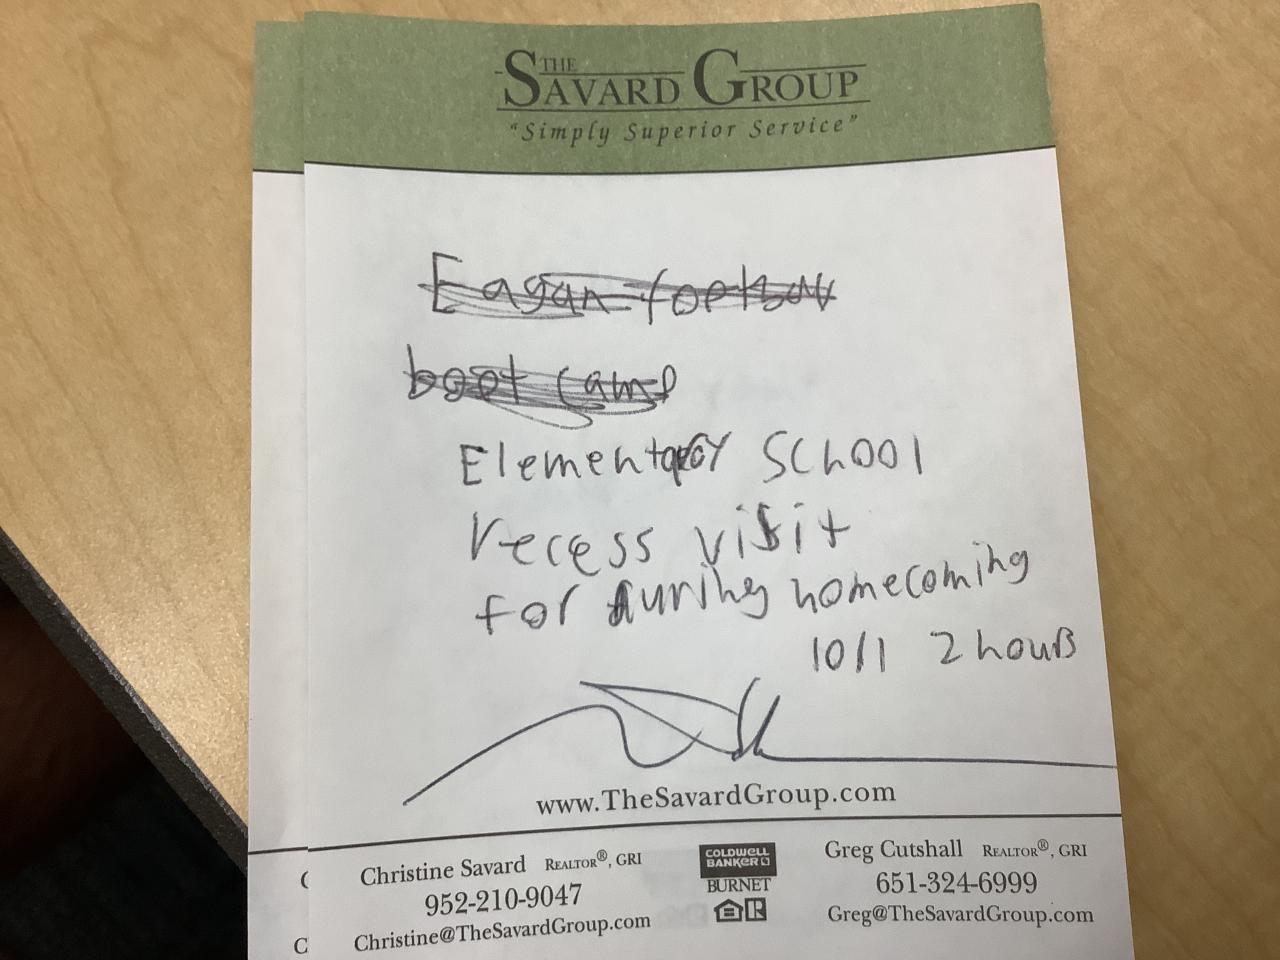 THE SAVARD GROUP
"Simply Superior Service"
Eagan football
boot camp
Elementary School
recess visit
for during homecoming
10/1 2 hours
www.TheSavardGroup.com
Christine Savard REALTOR®, GRI
952-210-9047
Christine@TheSavardGroup.com
COLDWELL
BANKER
BURNET
R
Greg Cutshall REALTOR®, GRI
651-324-6999
Greg@TheSavardGroup.com
C
C